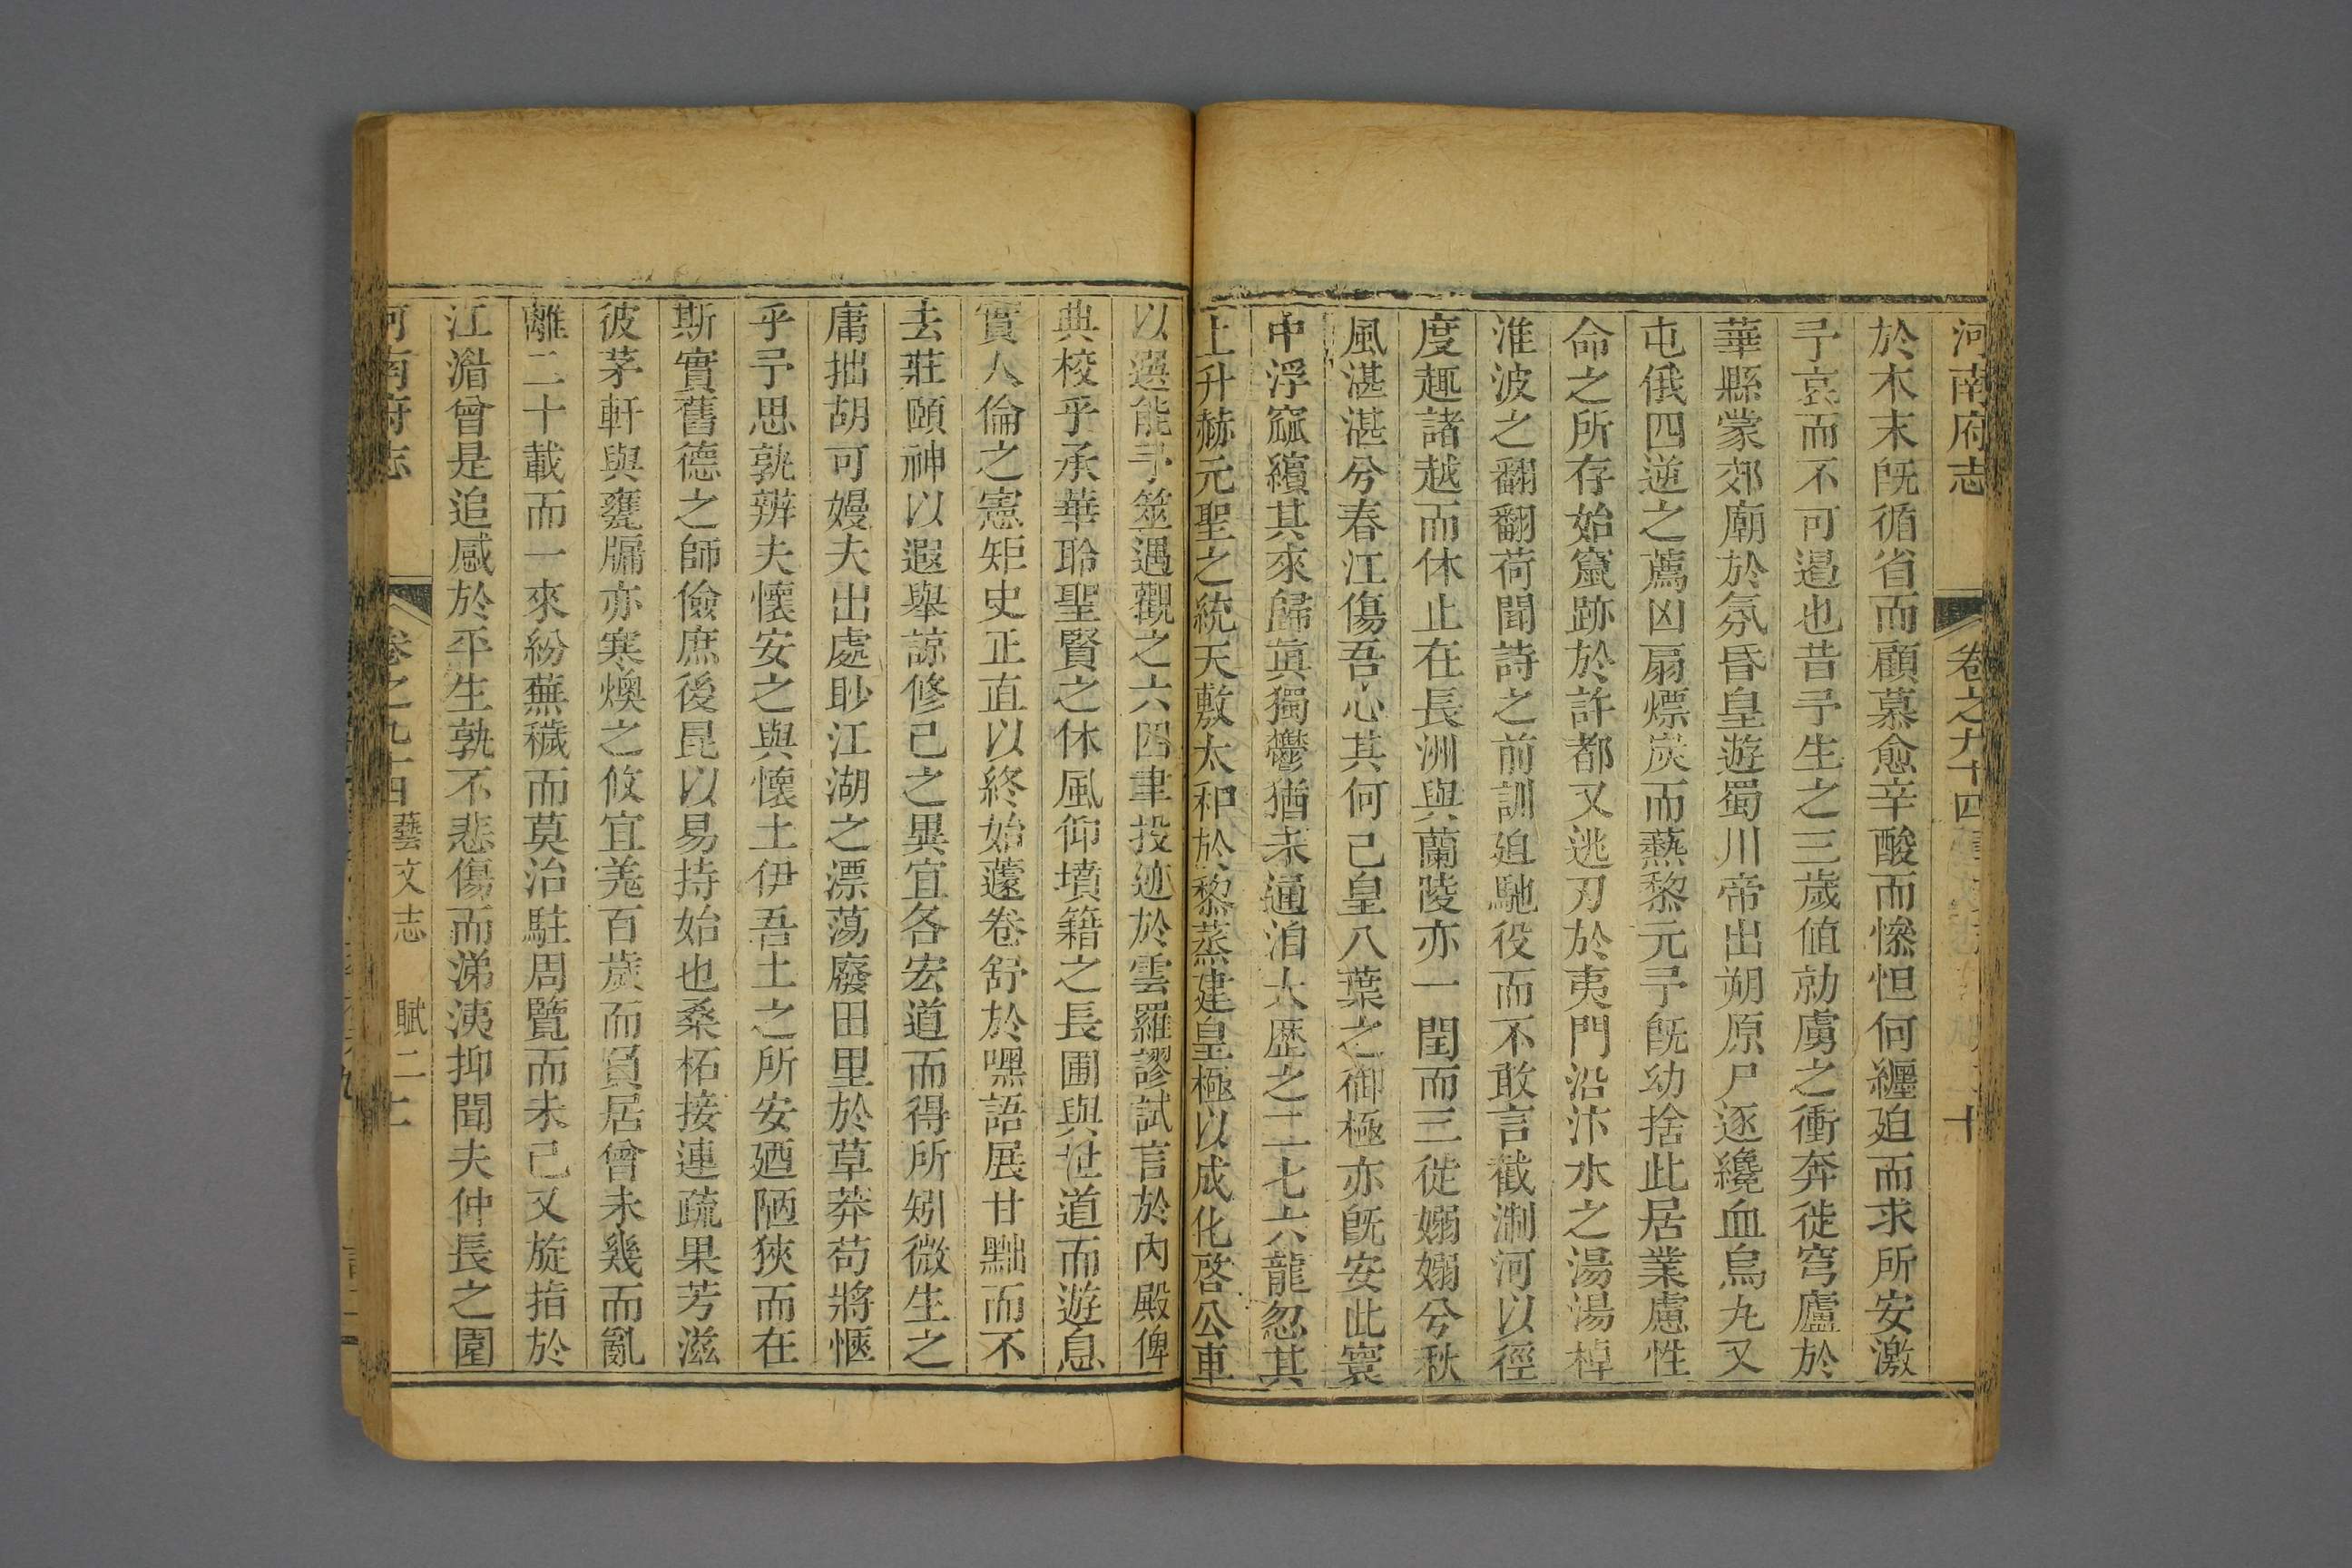 河南府志 卷之九十四 十
於木末旣循省而顧慕愈辛酸而慘怛何纏廹而求所安激
予哀而不可遏也昔予生之三歲値勍虜之衝奔徙穹廬於
華縣蒙郊廟於氛昏皇遊蜀川帝出朔原尸逐纔血烏丸又
屯俄四逆之薦凶扇熛炭而爇黎元予旣幼捨此居業慮性
命之所存始竄跡於許都又逃刃於夷門沿汴水之湯湯棹
淮波之翻翻荷聞詩之前訓廹馳役而不敢言截淛河以徑
度趣諸越而休止在長洲與蘭陵亦一閏而三徙嫋嫋兮秋
風湛湛兮春江傷吾心其何已皇八葉之御極亦旣安此寰
中浮竄繽其來歸眞獨鬱猶未通洎大歴之二七六龍忽其
上升赫元聖之統天敷太和於黎蒸建皇極以成化啓公車
以選能予筮遇觀之六四聿投迹於雲羅謬試言於內殿俾
典校乎承華聆聖賢之休風仰墳籍之長圃與壯道而遊息
實人倫之憲矩史正直以終始蘧卷舒於嘿語展甘黜而不
去莊頤神以遐舉諒修己之異宜各宏道而得所矧微生之
庸拙胡可嫚夫出處眇江湖之漂蕩廢田里於草莽苟將愜
乎予思孰辨夫懷安之與懷土伊吾土之所安廼陋狹而在
斯實舊德之師儉庶後昆以易持始也桑柘接連疏果芳滋
彼茅軒與甕牖亦寒燠之攸宜羗百歲而負居曾未幾而亂
離二十載而一來紛蕪穢而莫治駐周覽而未已又旋指於
江湽曾是追感於平生孰不悲傷而涕洟抑聞夫仲長之園
河南府志 卷之九十四 藝文志 賦二